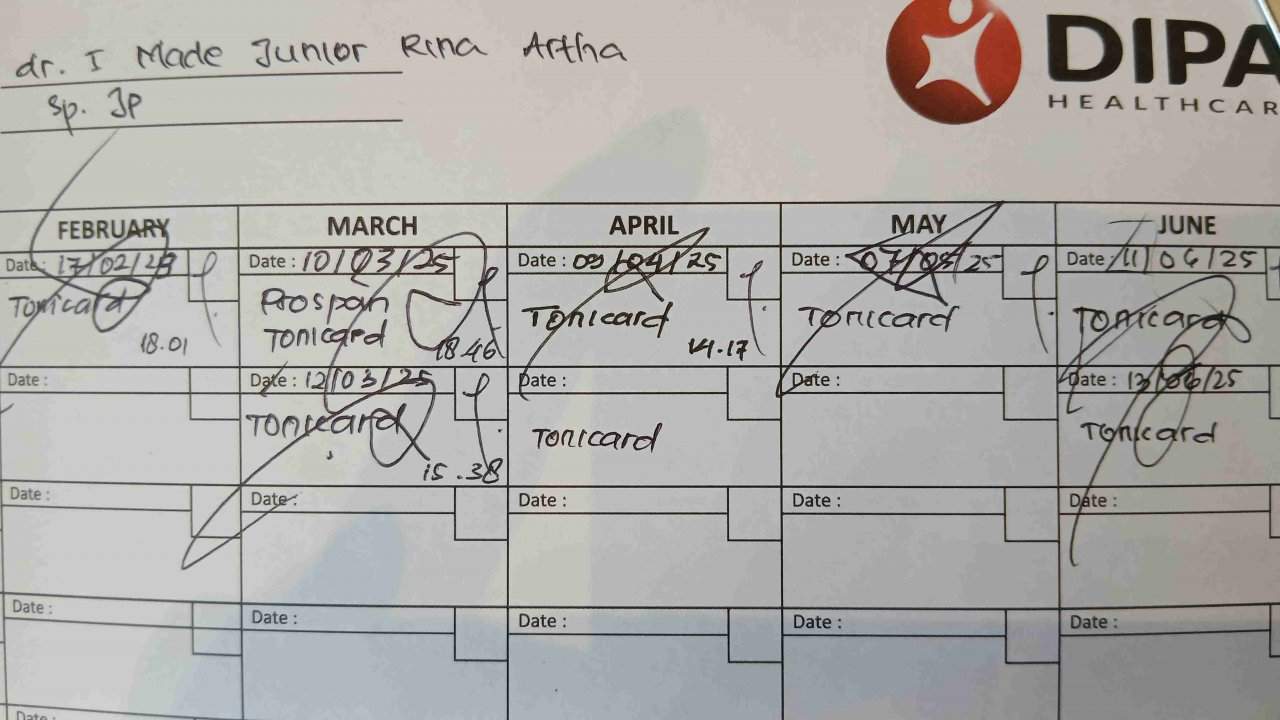 dr. I Made Junior Rina Artha
Sp. JP
DIPA
HEALTHCAR
FEBRUARY MARCH APRIL MAY JUNE
Date: 17/02/25 Date : 10/03/25 Date : 09/04/25 Date : 07/05/25 Date : 11/06/25
Tonicard Prospan Tonicard Tonicard Tonicard
Tonicard
18.01 18.46 14.17
Date : Date : 12/03/25 Date : Date : Date : 13/06/25
Tonicard Tonicard Tonicard
15.38
Date : Date : Date : Date : Date :
Date : Date : Date : Date : Date :
Date